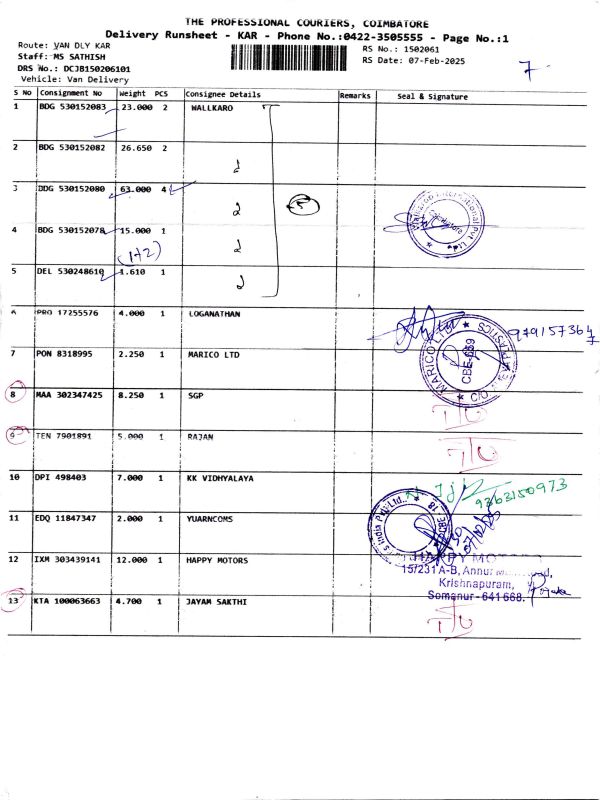 THE PROFESSIONAL COURIERS, COIMBATORE
Delivery Runsheet - KAR - Phone No.:0422-3505555 - Page No.:1
Route: VAN DLY KAR
Staff: MS SATHISH
DRS No.: DCJB150206101
Vehicle: Van Delivery
RS No.: 1502061
RS Date: 07-Feb-2025
7
S No Consignment No Weight PCS Consignee Details Remarks Seal & Signature
1 BDG 530152083 23.000 2 WALLKARO
2 BDG 530152082 26.650 2
3 DDG 530152080 63.000 4
4 BDG 530152078 15.000 1
(1+2)
5 DEL 530248610 1.610 1
6 PRO 17255576 4.000 1 LOGANATHAN
9791573647
7 PON 8318995 2.250 1 MARICO LTD
MARICO LTD
CBE-659
C/O
8 MAA 302347425 8.250 1 SGP
9 TEN 7901891 5.000 1 RAJAN
10 DPI 498403 7.000 1 KK VIDHYALAYA
9363150973
11 EDQ 11847347 2.000 1 YUARNCOMS
India Pvt. Ltd.
12 IXM 303439141 12.000 1 HAPPY MOTORS
15/231 A-B, Annur
Krishnapuram,
Somanur - 641 668.
13 KTA 100063663 4.700 1 JAYAM SAKTHI